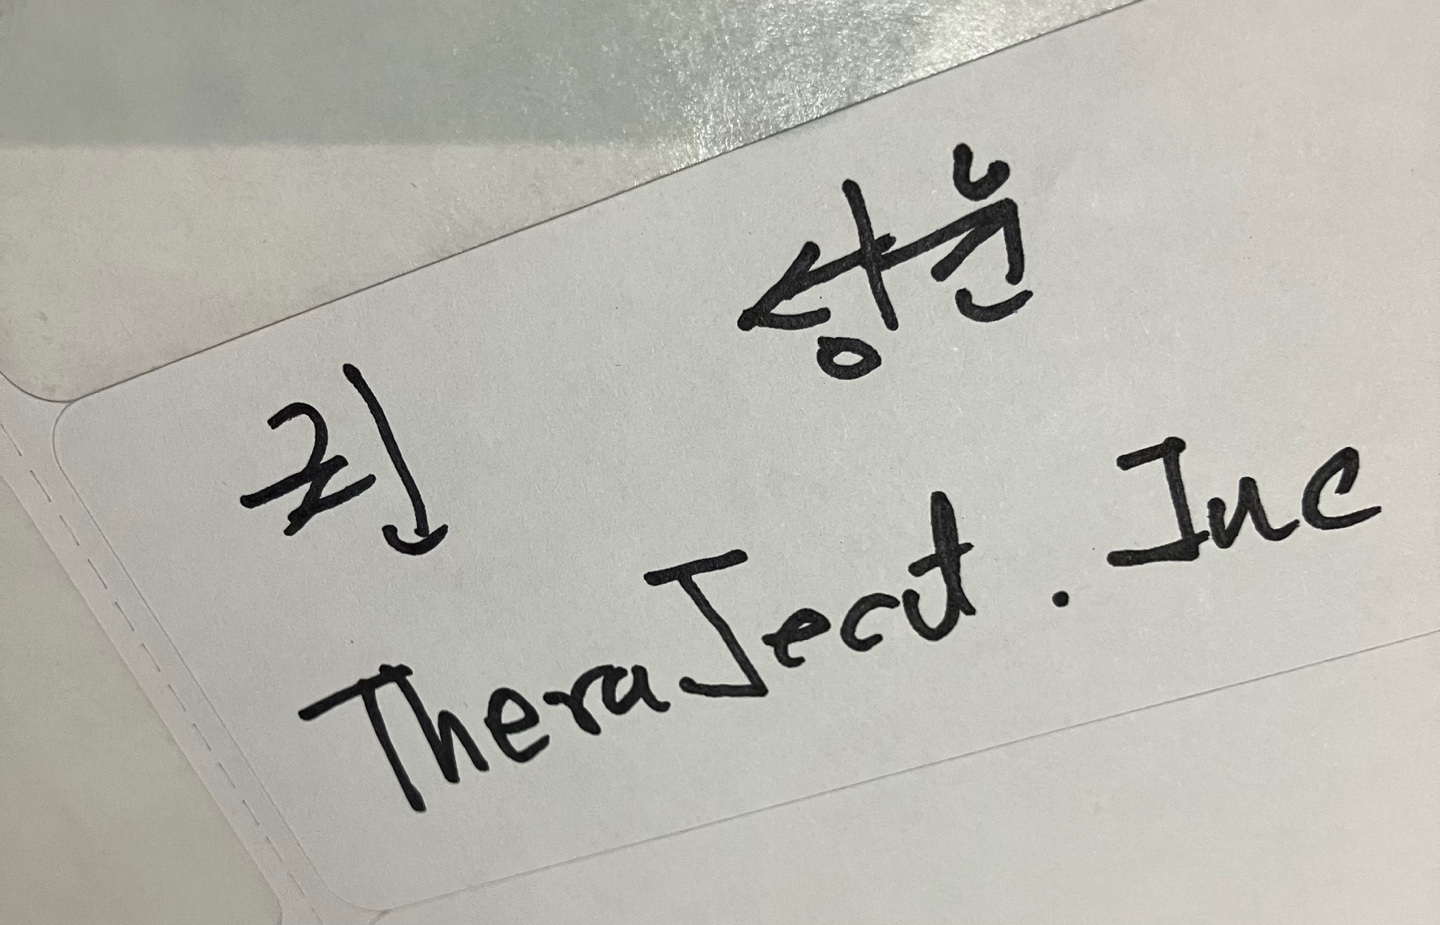 권 성윤
TheraJect. Inc